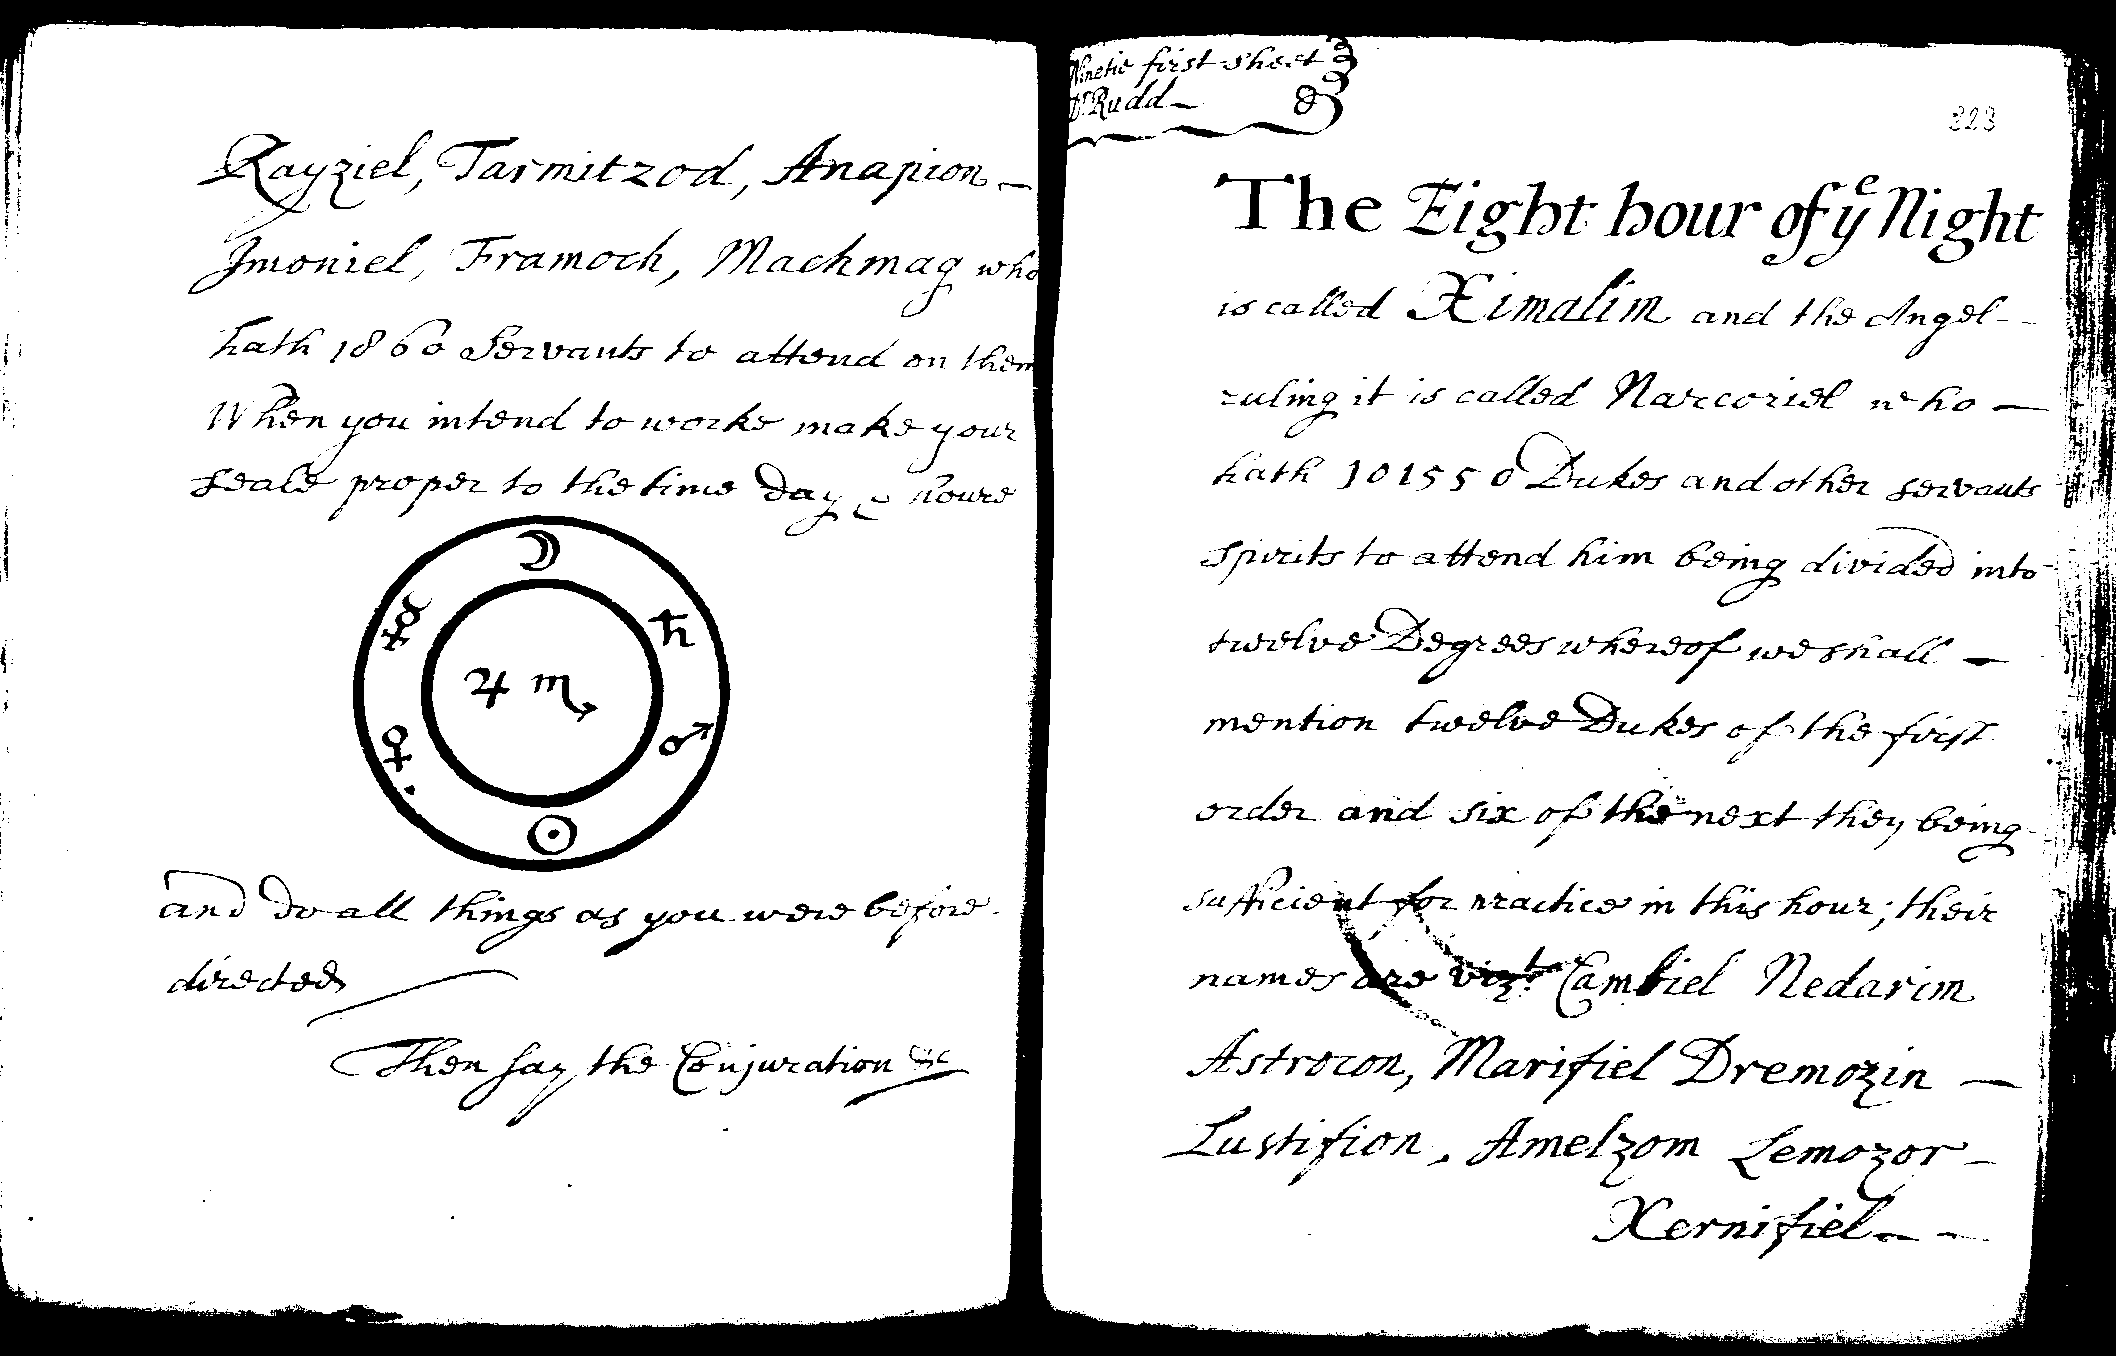 Rayziel, Tarmitzod, Anapion –
Jmoniel, Framoch, Machmag who
hath 1860 Servants to attend on them
When you intend to worke make your
seale proper to the time day & houre
☽
☿ ♄
♃ ♏
♀ ♂
☉
and do all things as you were before
directed
Then say the Conjuration &c
Ninetie first sheet
Dr Rudd –
323
The Eight hour of ye Night
is called Ximalim and the Angel –
ruling it is called Narcoriel who –
hath 101550 Dukes and other servants
spirits to attend him being divided into
twelve Degrees whereof we shall –
mention twelve Dukes of the first
order and six of the next they being
sufficient for practice in this hour; their
names are vizt. Cambiel Nedarim
Astrocon, Marifiel Dremozin –
Lustifion, Amelzom Lemozor –
Xernifiel – –